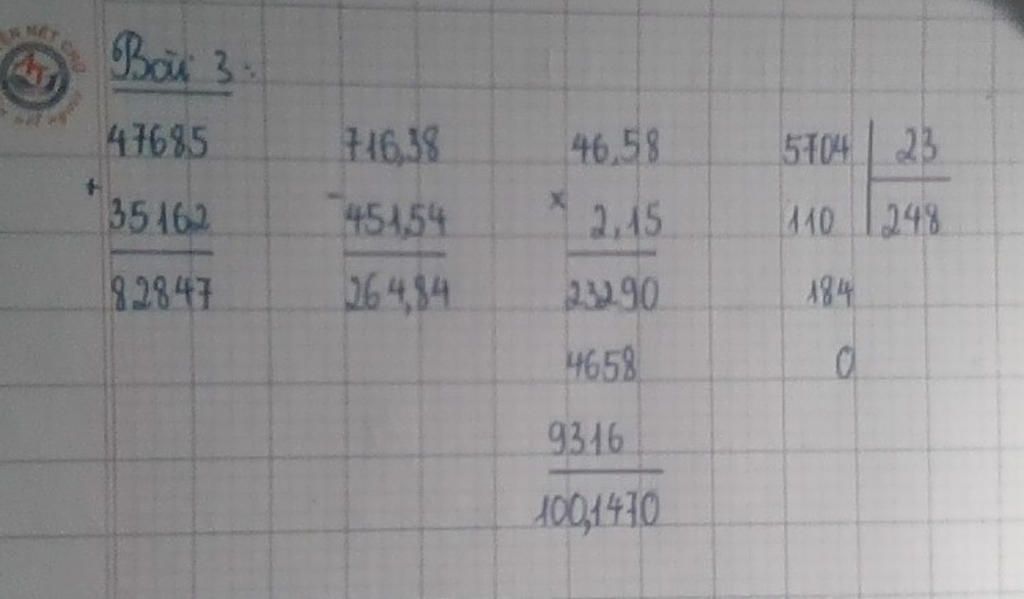 Bài 3:
47685 716,38 46,58 5704 23
+ - x
35162 451,54 2,15 110 248
82847 264,84 23290 184
4658 0
9316
100,1470